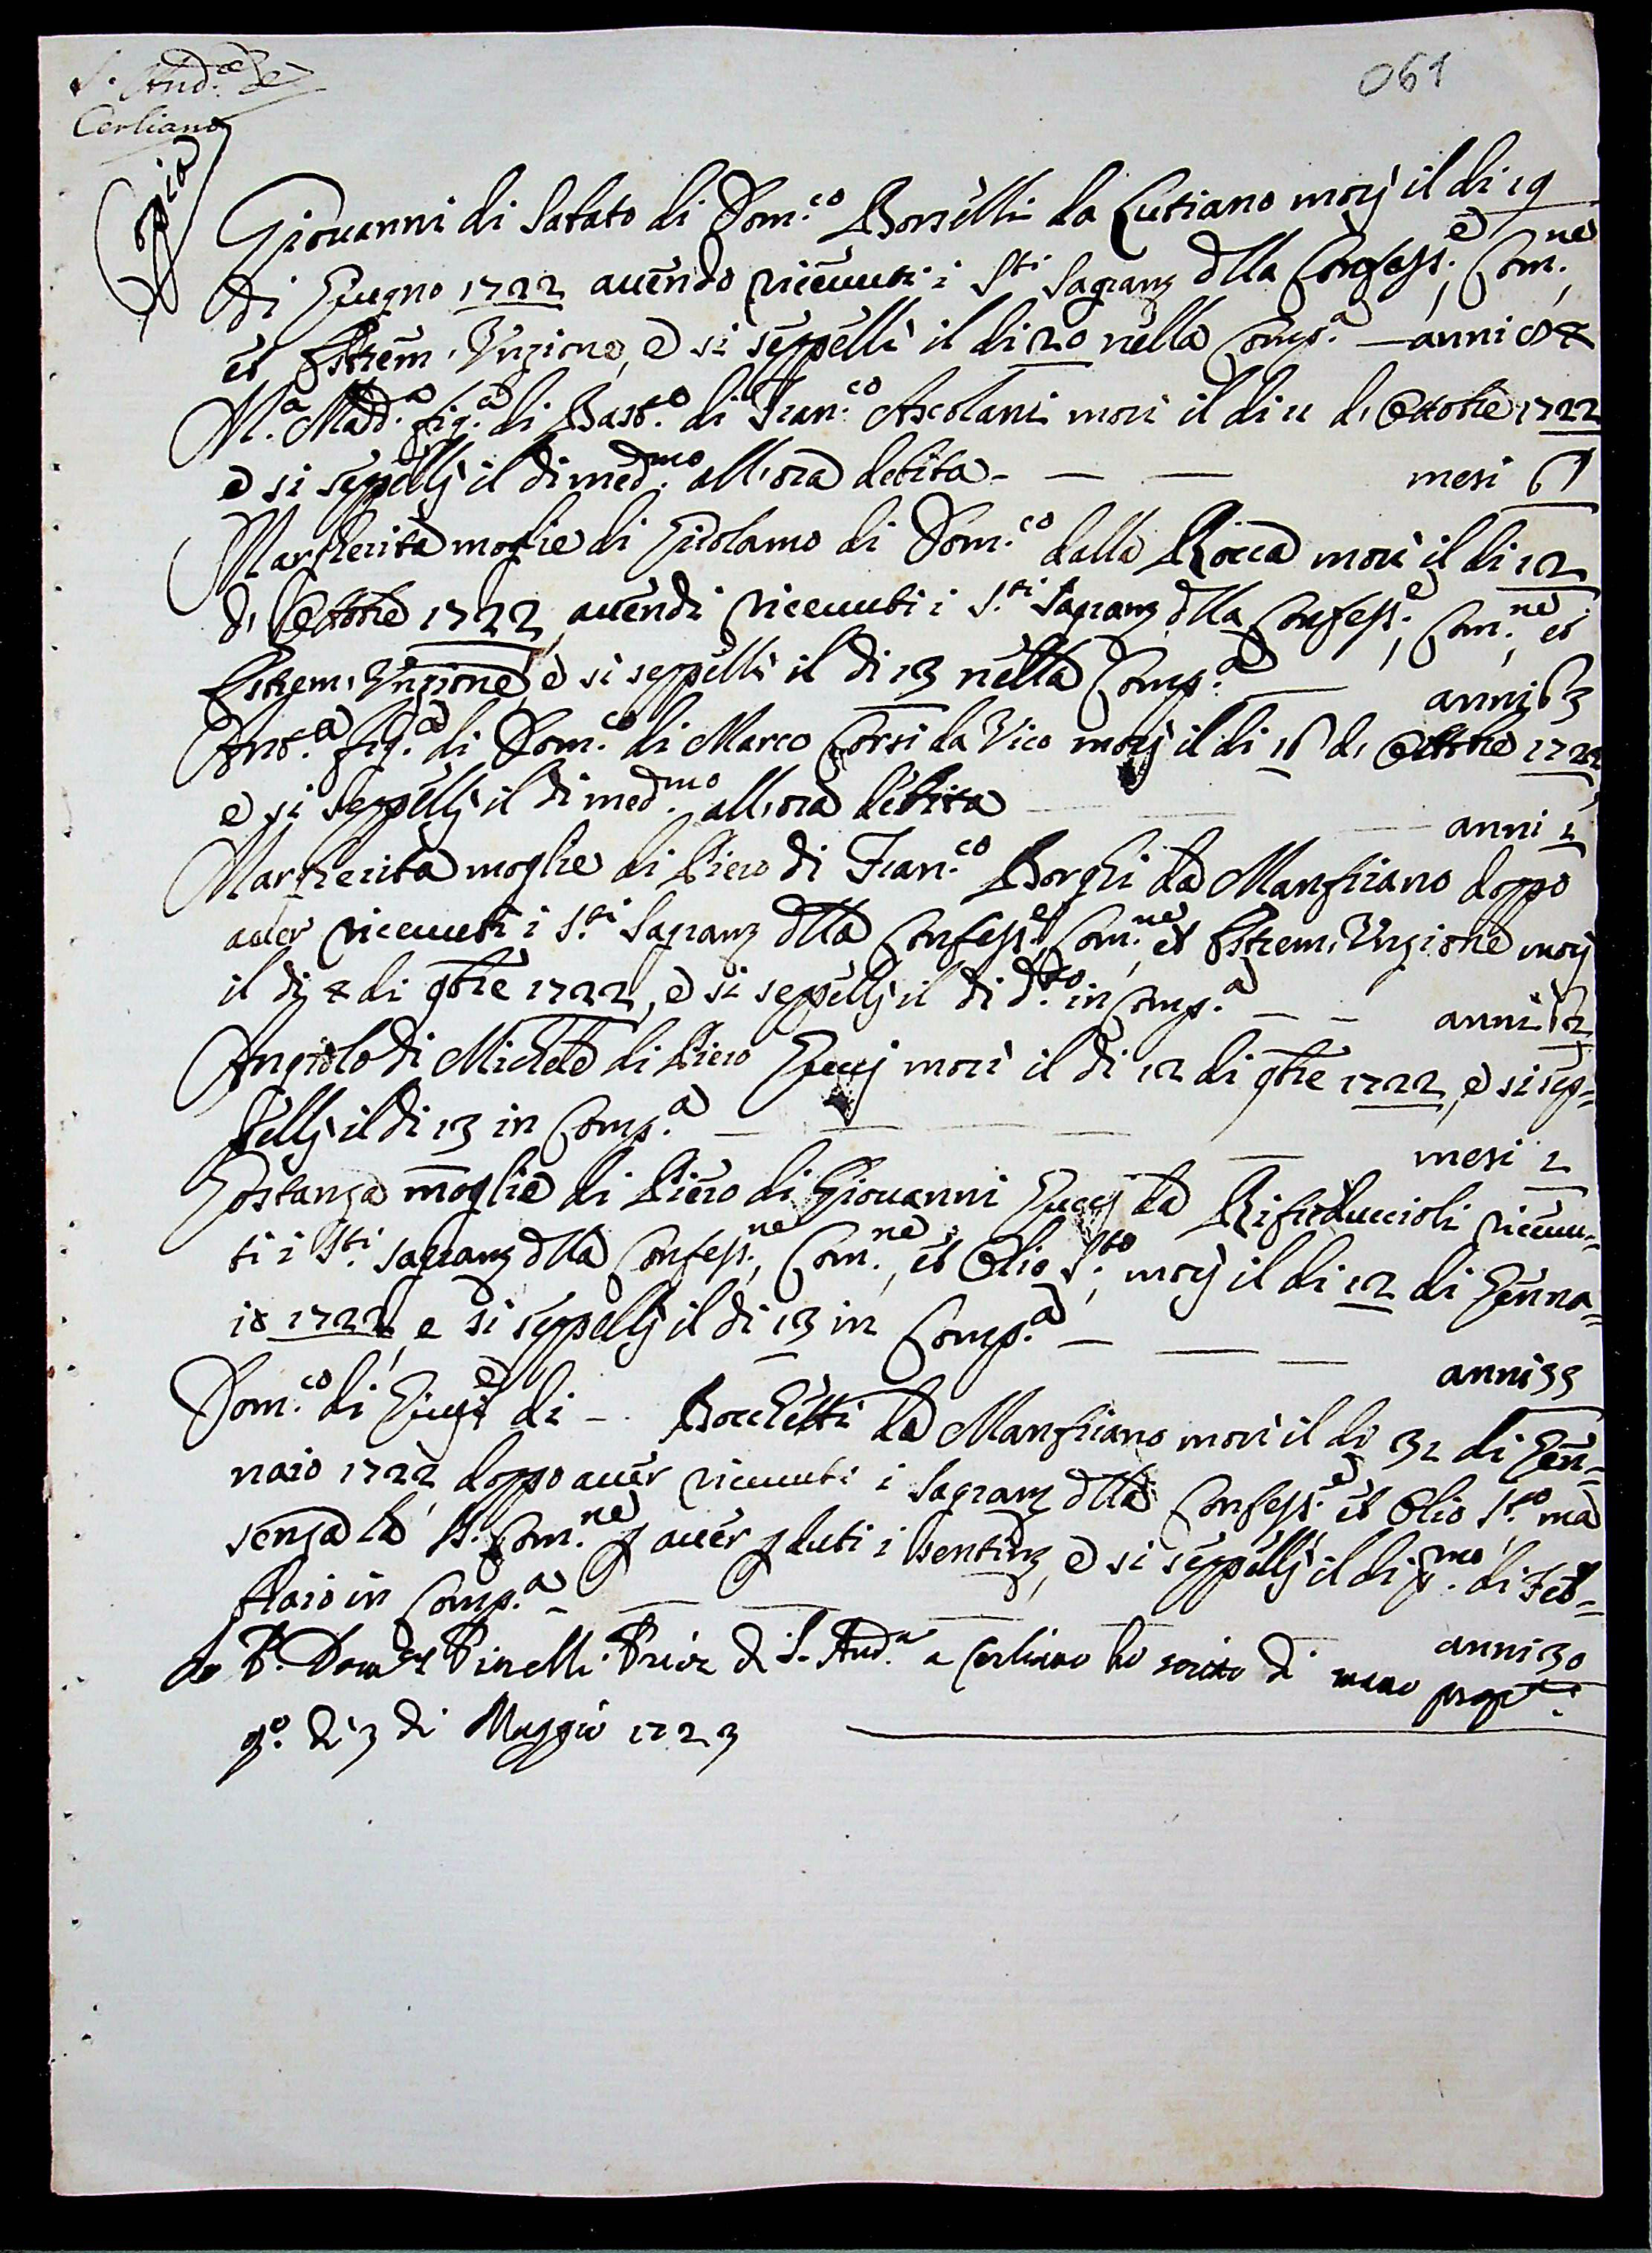 S. And.ᵃ a
Cerliano
Copia
061
Giouanni di Sabato di Dom.ᶜᵒ Borselli da Lutiano morj il dì 19
di Giugno 1722 auendo riceuuti i S.ᵗⁱ Sagram dlla Confess.ᵉ, Com.ⁿᵉ,
et Estrem. Unzione, e si seppellì il dì 20 nella Comp.ᵃ — anni
M.ᵃ Madd.ᵃ fig.ᵃ di Bast.ᵒ di Fran.ᶜᵒ Ascolani morì il dì 11 di Ottobre 1722
e si seppellj il dì med.ᵐᵒ all'ora debita — — — mesi
Margherita moglie di Girolamo di Dom.ᶜᵒ dalla Rocca morì il dì 12
di Ottobre 1722 auendi riceuuti i S.ᵗⁱ Sagram dlla Confess.ᵉ, Com.ⁿᵉ, et
Estrem. Unzione, e si seppellì il dì 13 nella Comp.ᵃ — anni 63
Ant.ᵃ fig.ᵃ di Dom.ᶜᵒ di Marco Corsi da Vico morj il dì 16 di Ottobre 1722
e si seppellj il dì med.ᵐᵒ all'ora debita — anni 2
Margherita moglie di Piero di Fran.ᶜᵒ Borghi da Marghiano doppo
auer riceuuti i S.ᵗⁱ Sagram dlla Confess.ᵉ Com.ⁿᵉ, et Estrem. Unzione morj
il dj di 9bre 1722, e si seppellj il dì d.ᵗᵒ in Comp.ᵃ — — anni
Angiolo di Michele di Piero morì il dì 12 di 9bre 1722, e si sep=
pellj il dì 13 in Comp.ᵃ — — — mesi 2
Gostanza moglie di Piero di Giouanni da Rifreduccioli riceuu=
ti i S.ᵗⁱ Sagram dlla Confess.ⁿᵉ, Com.ⁿᵉ, et Olio S.ᵗᵒ, morj il dì 12 di Genna=
io 1722, e si seppellj il dì 13 in Comp.ᵃ — — — anni 55
Dom.ᶜᵒ di di — Bocchetti da Marghiano morì il dì 31 di Gen=
naio 1722 doppo auer riceuuti i Sagram dlla Confess.ᵉ et Olio S.ᵗᵒ ma
senza la S. Com.ⁿᵉ p auer pduti i sentim, e si seppellj il dì p.ᵐᵒ di Feb=
braio in Comp.ᵃ — — — anni 30
Io P. Dom.ᶜᵒ Pinelli Prior di S. And.ᵃ a Cerliano ho scritto di mano prop.ᵃ
q.ᵒ dì 3 di Maggio 1723